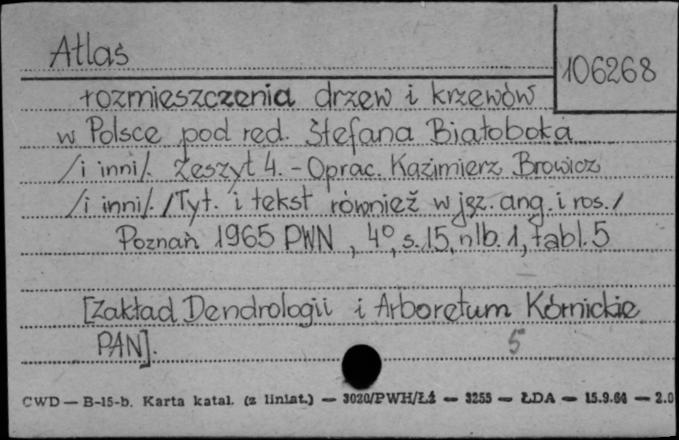 Atlas
106268
rozmieszczenia drzew i krzewów
w Polsce pod red. Stefana Białoboka
/i inni/. Zeszyt 4. - Oprac. Kazimierz Browicz
/i inni/. /Tyt. i tekst również w jęz. ang. i ros./
Poznań 1965 PWN, 4°, s. 15, nlb. 1, tabl. 5
[Zakład Dendrologii i Arboretum Kórnickie
PAN].
5
CWD — B-15-b. Karta katal. (z liniat.) — 3020/PWH/Łż — 3255 — ŁDA — 15.9.64 — 2.0